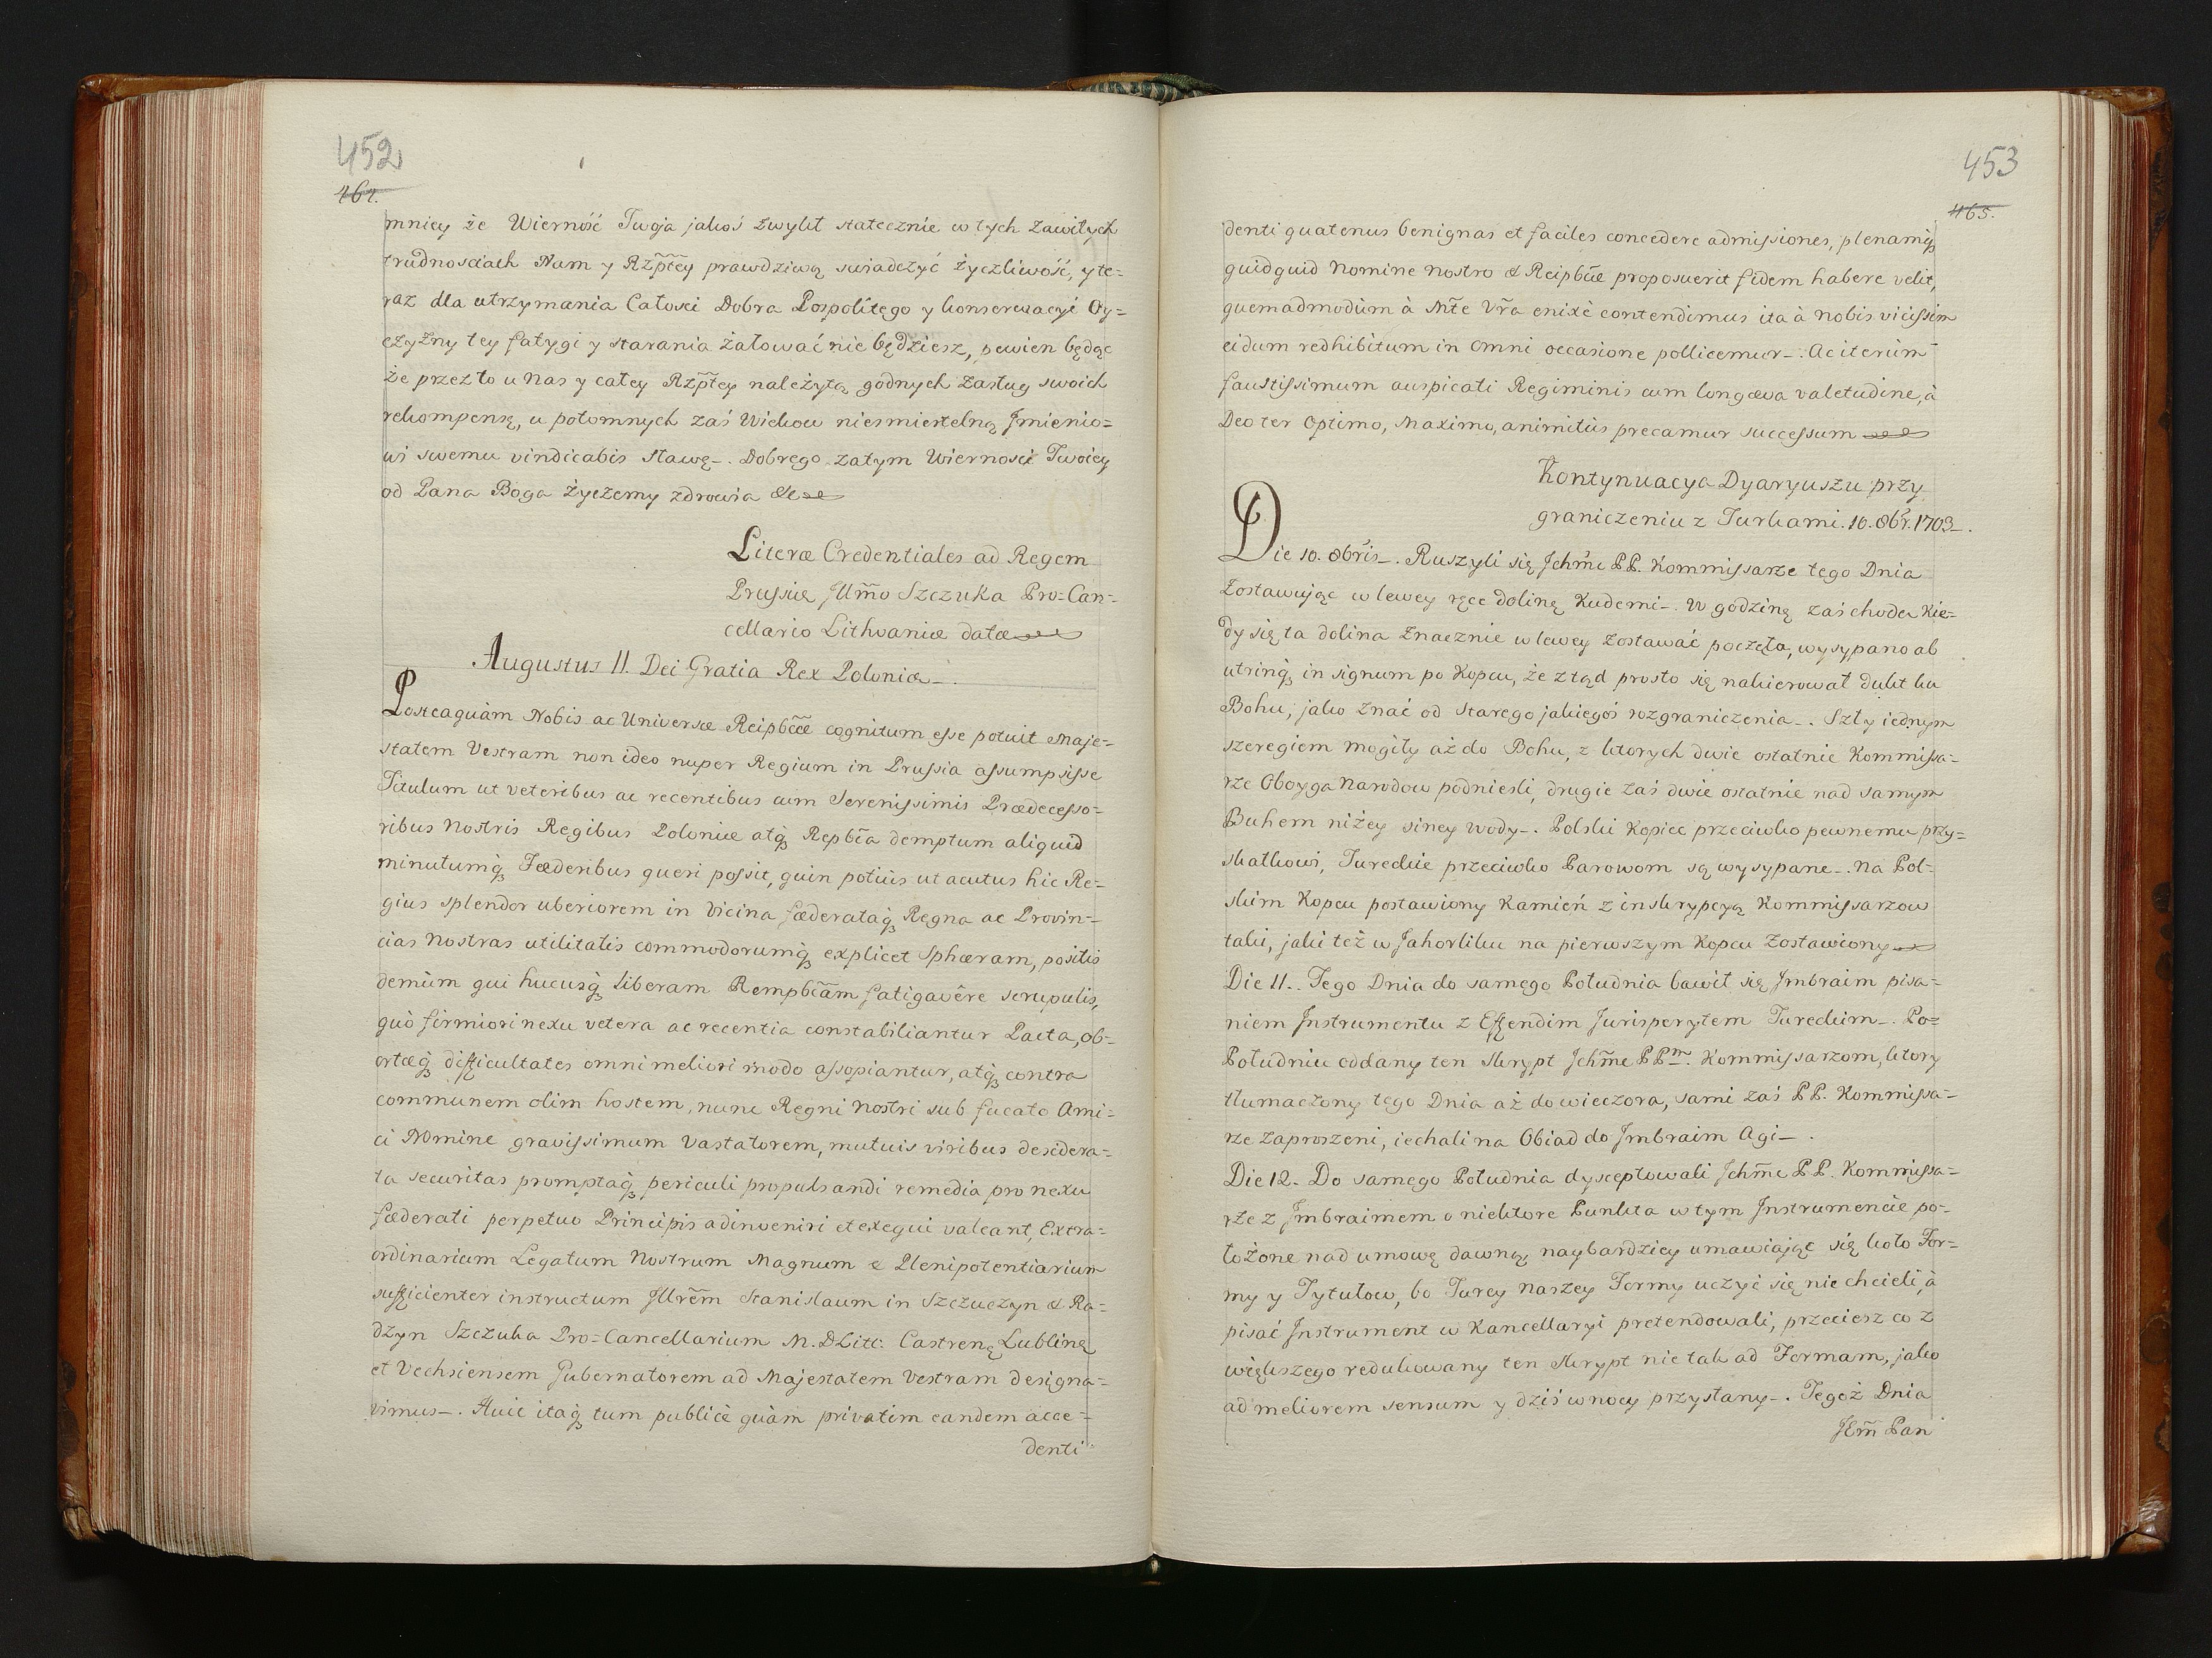 452
464.
mniey że Wierność Twoja jakoś zwykł statecznie w tych zawiłych
trudnosciach Nam y Rzp̃tey prawdziwą swiadczyć życzliwość, y te=
raz dla utrzymania Całosci Dobra Pospolitego y konserwacyi Oy=
czyzny tey fatygi y starania żałować nie będziesz, pewien będąc
że przez to u Nas y całey Rzp̃tey należytą godnych zasług swoich
rekompensę, u potomnych zaś Wiekow niesmiertelną Jmienio=
wi swemu vindicabis sławę_. Dobrego zatym Wiernosci Twoiey
od Pana Boga życzemy zdrowia &c
Literæ Credentiales ad Regem
Prussiæ Jllm̃o Szczuka Pro=Can=
cellario Lithvaniæ datæ
Augustus II. Dei Gratia Rex Poloniæ_.
Posteaquàm Nobis ac Universæ Reipb̃cæ cognitum esse potuit Maje=
statem Vestram non ideo nuper Regium in Prussia assumpsisse
Titulum ut veteribus ac recentibus cum Serenissimis Prædecesso=
ribus Nostris Regibus Poloniæ atq̃ Repb̃ca demptum aliquid
minutumq̃ Fæderibus queri possit, quin potiùs ut acutus hic Re=
gius splendor uberiorem in Vicina fæderataq̃ Regna ac Provin=
cias Nostras utilitatis commodorumq̃ explicet Sphæram, positis
demùm qui hucusq̃ liberam Rempb̃cam fatigavêre scrupulis,
quò firmiori nexu vetera ac recentia constabiliantur Pacta, ob=
ortæq̃ difficultates omni meliori modo assopiantur, atq̃ contra
communem olim hostem, nunc Regni Nostri sub fucato Ami=
ci Nomine gravissimum Vastatorem, mutuis viribus desidera=
ta securitas promptaq̃ periculi propulsandi remedia pro nexu
fæderati perpetuo Principis adinveniri et exequi valeant, Extra=
ordinarium Legatum Nostrum Magnum & Plenipotentiarium
sufficienter instructum Jllrẽm Stanislaum in Szczuczyn & Ra=
dzyn Szczuka Pro=Cancellarium M. D Litt: Castrenę Lublinę
et Vechsiensem Gubernatorem ad Majestatem Vestram designa=
vimus_. Huic itaq̃ tum publicè quàm privatim eandem acce=
denti
453
465.
denti quatenus benignas et faciles concedere admissiones, plenamq̃
quidquid Nomine nostro & Reipb̃cæ proposuerit fidem habere velit,
quemadmodùm à Mt̃e Vr̃a enixè contendimus ita à nobis vicissim
eidum redhibitum in omni occasione pollicemur_. Ac iterùm
faustissimum auspicati Regiminis cum longæva valetudine, à
Deo ter Optimo, Maximo, animitùs precamur successum
Kontynuacya Dyaryuszu przy
graniczeniu z Turkami. 10. 8br̃. 1703_.
Die 10. 8bris_. Ruszyli się Jchm̃c PP. Kommissarze tego Dnia
zostawując w lewey ręce dolinę Kudemi_. W godzinę zaś chodu Kie=
dy się ta dolina znacznie w lewey zostawać poczęła, wysypano ab
utrinq̃ in signum po Kopcu, że ztąd prosto się nakierował dukt ku
Bohu, jako znać od starego jakiegoś rozgraniczenia_. Szły iednym
szeregiem mogiły aż do Bohu, z ktorych dwie ostatnie Kommissa=
rze Oboyga Narodow podniesli, drugie zaś dwie ostatnie nad samym
Buhem niżey siney wody_. Polski Kopiec przeciwko pewnemu przy=
skałkowi, Tureckie przeciwko Parowom są wysypane_. Na Pol=
skim Kopcu postawiony Kamień z inskrypcyą Kommissarzow
taki, jaki też w Jahorliku na pierwszym Kopcu zostawiony
Die 11. Tego Dnia do samego Południa bawił się Jmbraim pisa=
niem Jnstrumentu z Effendim Jurisperytem Tureckim_. Po=
Południu oddany ten skrypt Jchm̃c PPm. Kommissarzom, ktory
tłumaczony tego Dnia aż do wieczora, sami zaś PP. Kommissa=
rze zaproszeni, iechali na Obiad do Jmbraim Agi_.
Die 12. Do samego Południa dysceptowali Jchm̃c PP. Kommissa=
rze z Jmbraimem o niektore Punkta w tym Jnstrumencie po=
łożone nad umowę dawną naybardziey umawiając się koło For=
my y Tytułow, bo Turcy naszey Formy uczyć się nie chcieli, à
pisać Jnstrument w Kancellaryi pretendowali, przeciesz co z
większego redukowany ten skrypt nie tak ad Formam, jako
ad meliorem sensum y dziś w nocy przysłany_. Tegoż Dnia
JEm̃ Pan